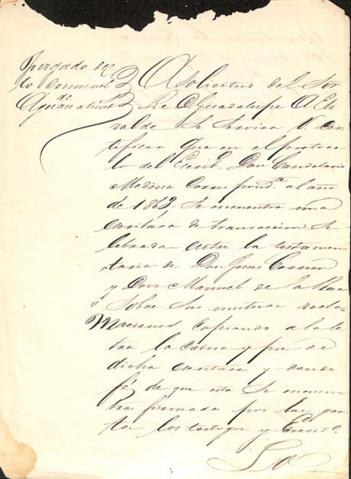 Juzgado
de
A solicitud del Sor
Lic. D. Guadalupe
se servirá V. cer-
tificar que en el protoco-
lo del Escrib. Don Candelario
Medina correspond.te al año
de 1863. se encuentra una
escritura de transaccion ce-
lebrada entre la testamen-
taria de Don Juan
y Don Manuel de la
sobre sus mutuas recla-
maciones, copiando a la le-
tra la cabeza y pie de
dicha escritura y dando
fé de que esta se encuen-
tra firmada por las par-
tes los testigos y Escrib.
Lo